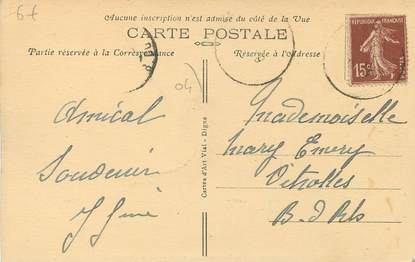 6 €
Aucune inscription n'est admise du côté de la Vue
CARTE POSTALE
Partie réservée à la Correspondance
Réservée à l'Adresse
REPUBLIQUE FRANÇAISE
15 c
04
Amical
Souvenir
Cartes d'Art Vial - Digne
Mademoiselle
Mary Emery
Vitrolles
B. d Rh